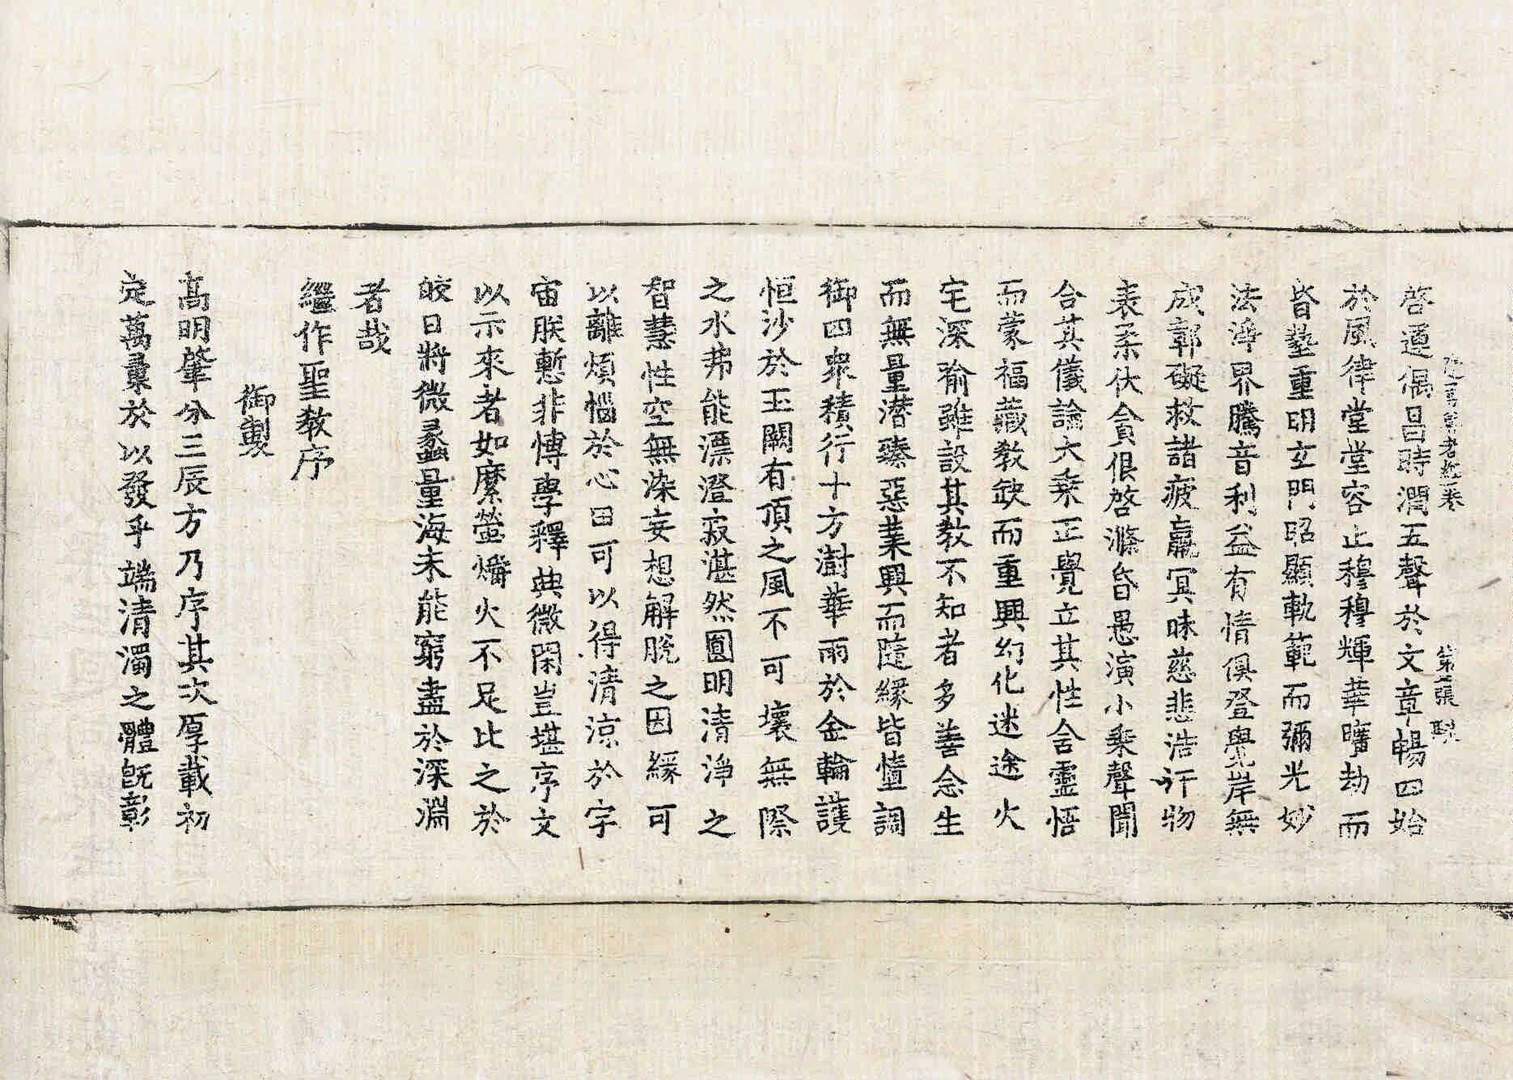 者經一卷 第二張
啓遵偶昌時潤五聲於文章暢四始
於風律堂堂容止穆穆輝華曠劫而
昏蟄重明玄門昭顯軌範而彌光妙
法淨界騰音利益有情俱登覺岸無
成鄣礙救諸疲羸冥昧慈悲浩汗物
表柔伏貪佷啓滌昏愚演小乘聲聞
合其儀論大乘正覺立其性含靈悟
而蒙福藏教缺而重興幻化迷途火
宅深喻雖設其教不知者多善念生
而無量潛臻惡業興而隨緣皆墮調
御四衆積行十方澍華雨於金輪護
恒沙於玉闕有頂之風不可壞無際
之水弗能漂澄寂湛然圓明清淨之
智慧性空無染妄想解脫之因緣可
以離煩惱於心田可以得清涼於宇
宙朕慙非博學釋典微閑豈堪序文
以示來者如縻螢爝火不足比之於
皎日將微蠡量海未能窮盡於深淵
者哉
繼作聖教序
御製
高明肇分三辰方乃序其次厚載初
定萬彙於以發乎端清濁之體旣彰